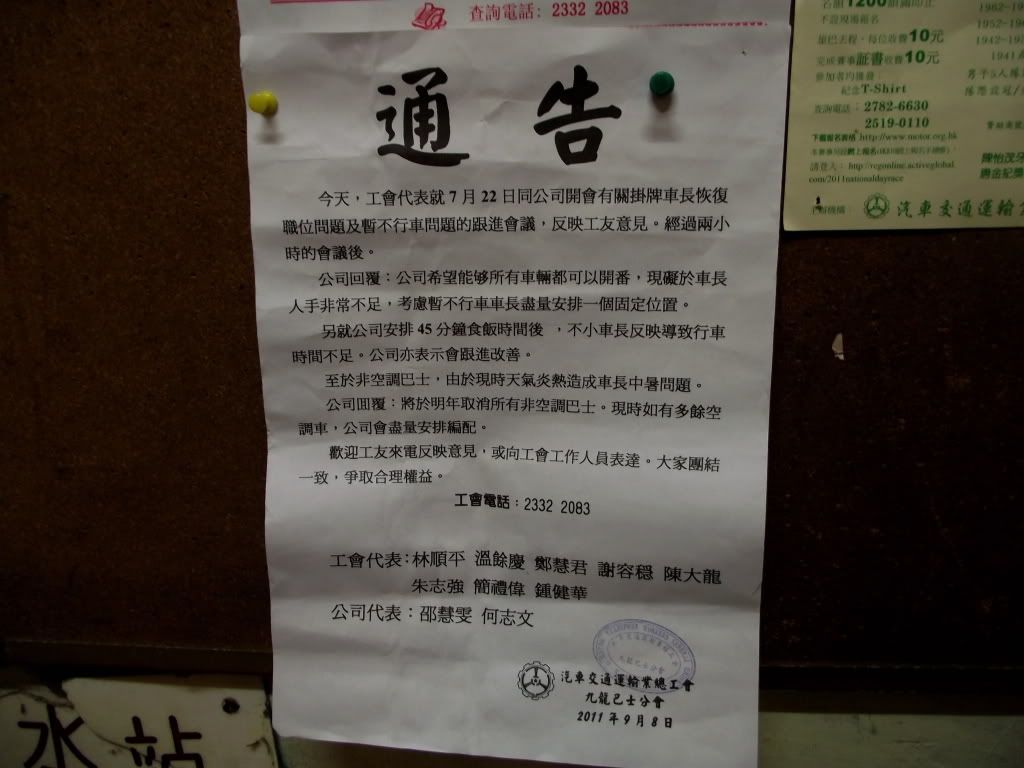 查詢電話: 2332 2083
通告
今天，工會代表就 7 月 22 日同公司開會有關掛牌車長恢復
職位問題及暫不行車問題的跟進會議，反映工友意見。經過兩小
時的會議後。
公司回覆：公司希望能够所有車輛都可以開番，現礙於車長
人手非常不足，考慮暫不行車車長盡量安排一個固定位置。
另就公司安排 45 分鐘食飯時間後 ，不小車長反映導致行車
時間不足。公司亦表示會跟進改善。
至於非空調巴士，由於現時天氣炎熱造成車長中暑問題。
公司回覆：將於明年取消所有非空調巴士。現時如有多餘空
調車，公司會盡量安排編配。
歡迎工友來電反映意見，或向工會工作人員表達。大家團結
一致，爭取合理權益。
工會電話：2332 2083
工會代表：林順平 溫餘慶 鄭慧君 謝容穩 陳大龍
朱志強 簡禮偉 鍾健華
公司代表：邵慧雯 何志文
汽車交通運輸業總工會
九龍巴士分會
2011 年 9 月 8 日
名額1200
不設現場報名
每位收費10元
完成賽事証書收費10元
參加者均獲發：
紀念T-Shirt
查詢電話：2782-6630
2519-0110
下載報名表格 http://www.motor.org.hk
請登入：http://regonline.activeglobal.
com/2011nationaldayrace
主辦機構：
汽車交通運輸業
1962-19
1952-196
1942-195
1941
男子5人隊
水站